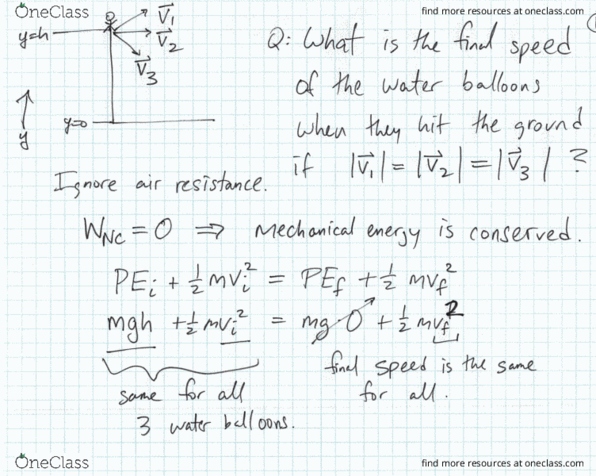 OneClass
find more resources at oneclass.com
y=h
V₁
V₂
V₃
y
y=0
Q: What is the final speed
of the water balloons
when they hit the ground
if |V₁| = |V₂| = |V₃| ?
Ignore air resistance.
W_NC = 0 ⇒ mechanical energy is conserved.
PEᵢ + ½ mvᵢ² = PE_f + ½ mv_f²
mgh + ½ mvᵢ² = mg·0 + ½ mv_f²
same for all
3 water balloons.
final speed is the same
for all.
OneClass
find more resources at oneclass.com